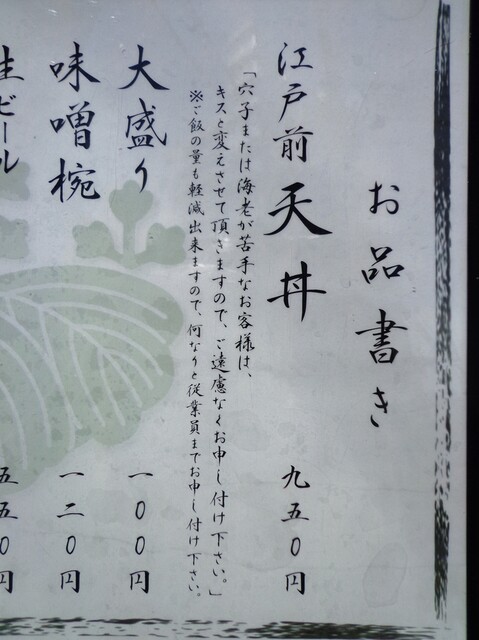 お品書き
江戸前天丼 九五〇円
「穴子または海老が苦手なお客様は、
キスと変えさせて頂きますので、ご遠慮なくお申し付け下さい。」
※ご飯の量も軽減出来ますので、何なりと従業員までお申し付け下さい。
大盛り 一〇〇円
味噌椀 一二〇円
生ビール 五五〇円